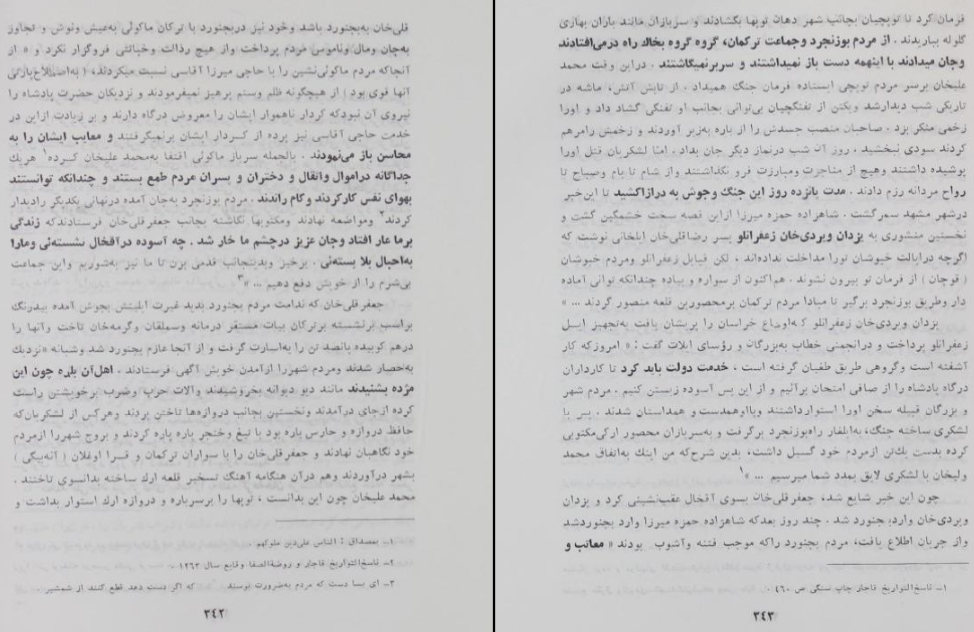 قلی‌خان به‌بجنورد باشد وخود نیز دربجنورد با ترکان ماکوئی به‌عیش ونوش و تجاوز
به‌جان ومال وناموس مردم پرداخت واز هیچ رذالت وخیانتی فروگزار نکرد و « از
آنجاکه مردم ماکوئی‌نشین را با حاجی میرزا آقاسی نسبت میکردند، ( به‌اصطلاح‌پارتی
آنها قوی بود ) از هیچگونه ظلم وستم پرهیز نمیفرمودند و نزدیکان حضرت پادشاه را
نیروی آن نبودکه کردار ناهموار ایشان را معروض درگاه دارند و بر زیادت ازاین در
خدمت حاجی آقاسی نیز پرده از کسردار ایشان برنمیگرفتند و معایب ایشان را به
محاسن باز می‌نمودند . بالجمله سرباز ماکوئی اقتفا به‌محمد علیخان کسرده۱ هریك
جداگانه دراموال واثقال و دختران و پسران مردم طمع بستند و چندانکه توانستند
بهوای نفس کارکردند وکام راندند . مردم بوزنجرد به‌جان آمده درنهانی یکدیگر رادیدار
کردند۲ ومواضعه نهادند ومکتوبها نگاشته بجانب جعفرقلی‌خان فرستادندکه زندگی
برما عار افتاد وجان عزیز درچشم ما خار شد . چه آسوده درآقخال نشسته‌ئی ومارا
به‌احبال بلا بسته‌ئی . برخیز وبدینجانب قدمی بزن تا ما نیز به‌شوریم واین جماعت
بی‌شرم را از خویش دفع دهیم ... »۳
جعفرقلی‌خان که ندامت مردم بجنورد بدید غیرت ایلیتش بجوش آمده بیدرنگ
براسب برنشسته برترکان بیات مستقر درمانه وسملقان وگرمه‌خان تاخت وآنها را
درهم کوبیده پانصد تن را به‌اسارت گرفت و از آنجا عازم بجنورد شد وشبانه «نزدیك
به‌حصار شدند ومردم شهررا ازآمدن خویش آگهی فرستادند . اهل‌آن بلده چون این
مژده بشنیدند مانند دیو دیوانه بخروشیدند وآلات حرب وضرب برخویشتن راست
کرده ازجای درآمدند ونخستین بجانب دروازه‌ها تاختن بردند وهرکس از لشکریان‌که
حافظ دروازه و حارس باره بود با تیغ وخنجر پاره پاره کردند و بروج شهررا ازمردم
خود نگاهبان نهادند و جعفرقلی‌خان را با سواران ترکمان و قسرا اوغلان ( آنه‌بیگی )
بشهر درآوردند وهم درآن هنگامه آهنگ تسخیر قلعه ارك ساخته بدانسوی تاختند .
محمد علیخان چون این بدانست ، توپها را برسرباره و دروازه ارك استوار بداشت و
۱ـ بمصداق : الناس علی‌دین ملوکهم .
۲ـ ناسخ‌التواریخ قاجار و روضةالصفا وقایع سال ۱۲۶۳ .
۳ـ ای بسا دست که مردم به‌ضرورت بوسند . که اگر دست دهد قطع کنند از شمشیر .
۳۴۲
فرمان کرد تا توپچیان بجانب شهر دهان توپها بگشادند و سربازان مانند باران بهاری
گلوله بباریدند . از مردم بوزنجرد وجماعت ترکمان، گروه گروه بخاك راه درمی‌افتادند
وجان میدادند با اینهمه دست باز نمیداشتند و سربرنمیگاشتند . دراین وقت محمد
علیخان برسر مردم توپچی ایستاده فرمان جنگ همیداد . از تابش آتش، ماشه در
تاریکی شب دیدارشد ویکتن از تفنگچیان بی‌توانی بجانب او تفنگی گشاد داد و اورا
زخمی منکر بزد . صاحبان منصب جسدش را از باره به‌زیر آوردند و زخمش رامرهم
کردند سودی نبخشید . روز آن شب درنماز دیگر جان بداد . اما لشکریان قتل اورا
پوشیده داشتند وهیچ از مناجزت ومبارزت فرو نگذاشتند واز شام تا بام وصباح تا
رواح مردانه رزم دادند . مدت پانزده روز این جنگ وجوش به درازاکشید تا این‌خبر
درشهر مشهد سمرگشت . شاهزاده حمزه میرزا ازاین قصه سخت خشمگین گشت و
نخستین منشوری به یزدان ویردی‌خان زعفرانلو پسر رضاقلی‌خان ایلخانی نوشت که
اگرچه درایالت خبوشان تورا مداخلت نداده‌اند ، لکن قبایل زعفرانلو ومردم خبوشان
( قوچان ) از فرمان تو بیرون نشوند . هم‌اکنون از سواره و پیاده چندانکه توانی آماده
دار وطریق بوزنجرد برگیر تا مبادا مردم ترکمان برمحصورین قلعه منصور گردند ... »
یزدان ویردی‌خان زعفرانلو که‌اوضاع خراسان را پریشان یافت به‌تجهیز ایسل
زعفرانلو پرداخت و درانجمنی خطاب به‌بزرگان و رؤسای ایلات گفت : « امروزکه کار
آشفته است وگروهی طریق طغیان گرفته است ، خدمت دولت باید کرد تا کارداران
درگاه پادشاه را از صافی امتحان برآئیم و از این پس آسوده زیستن کنیم . مردم شهر
و بزرگان قبیله سخن اورا استوارداشتند وبااوهمدست و همداستان شدند . پس با
لشکری ساخته جنگ، به‌ایلغار راه‌بوزنجرد برگرفت و به‌سربازان محصور ارکی‌مکتوبی
کرده بدست یك‌تن ازمردم خود گسیل داشت، بدین شرح‌که من اینك به‌اتفاق محمد
ولیخان با لشکری لایق بمدد شما میرسیم ... »۱
چون این خبر شایع شد، جعفرقلی‌خان بسوی آقخال عقب‌نشینی کرد و یزدان
ویردی‌خان وارد، بجنورد شد . چند روز بعدکه شاهزاده حمزه میرزا وارد بجنوردشد
واز جریان اطلاع یافت، مردم بجنورد راکه موجب فتنه وآشوب بودند « معاتب و
۱ـ ناسخ‌التواریخ قاجار چاپ سنگی ص ۴۶۰ .
۳۴۳